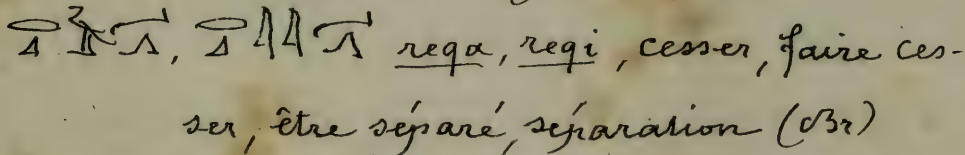 𓂋𓈎𓄿𓂻, 𓂋𓈎𓇋𓇋𓂻 reqa, reqi, cesser, faire ces-
ser, être séparé, séparation (Br)